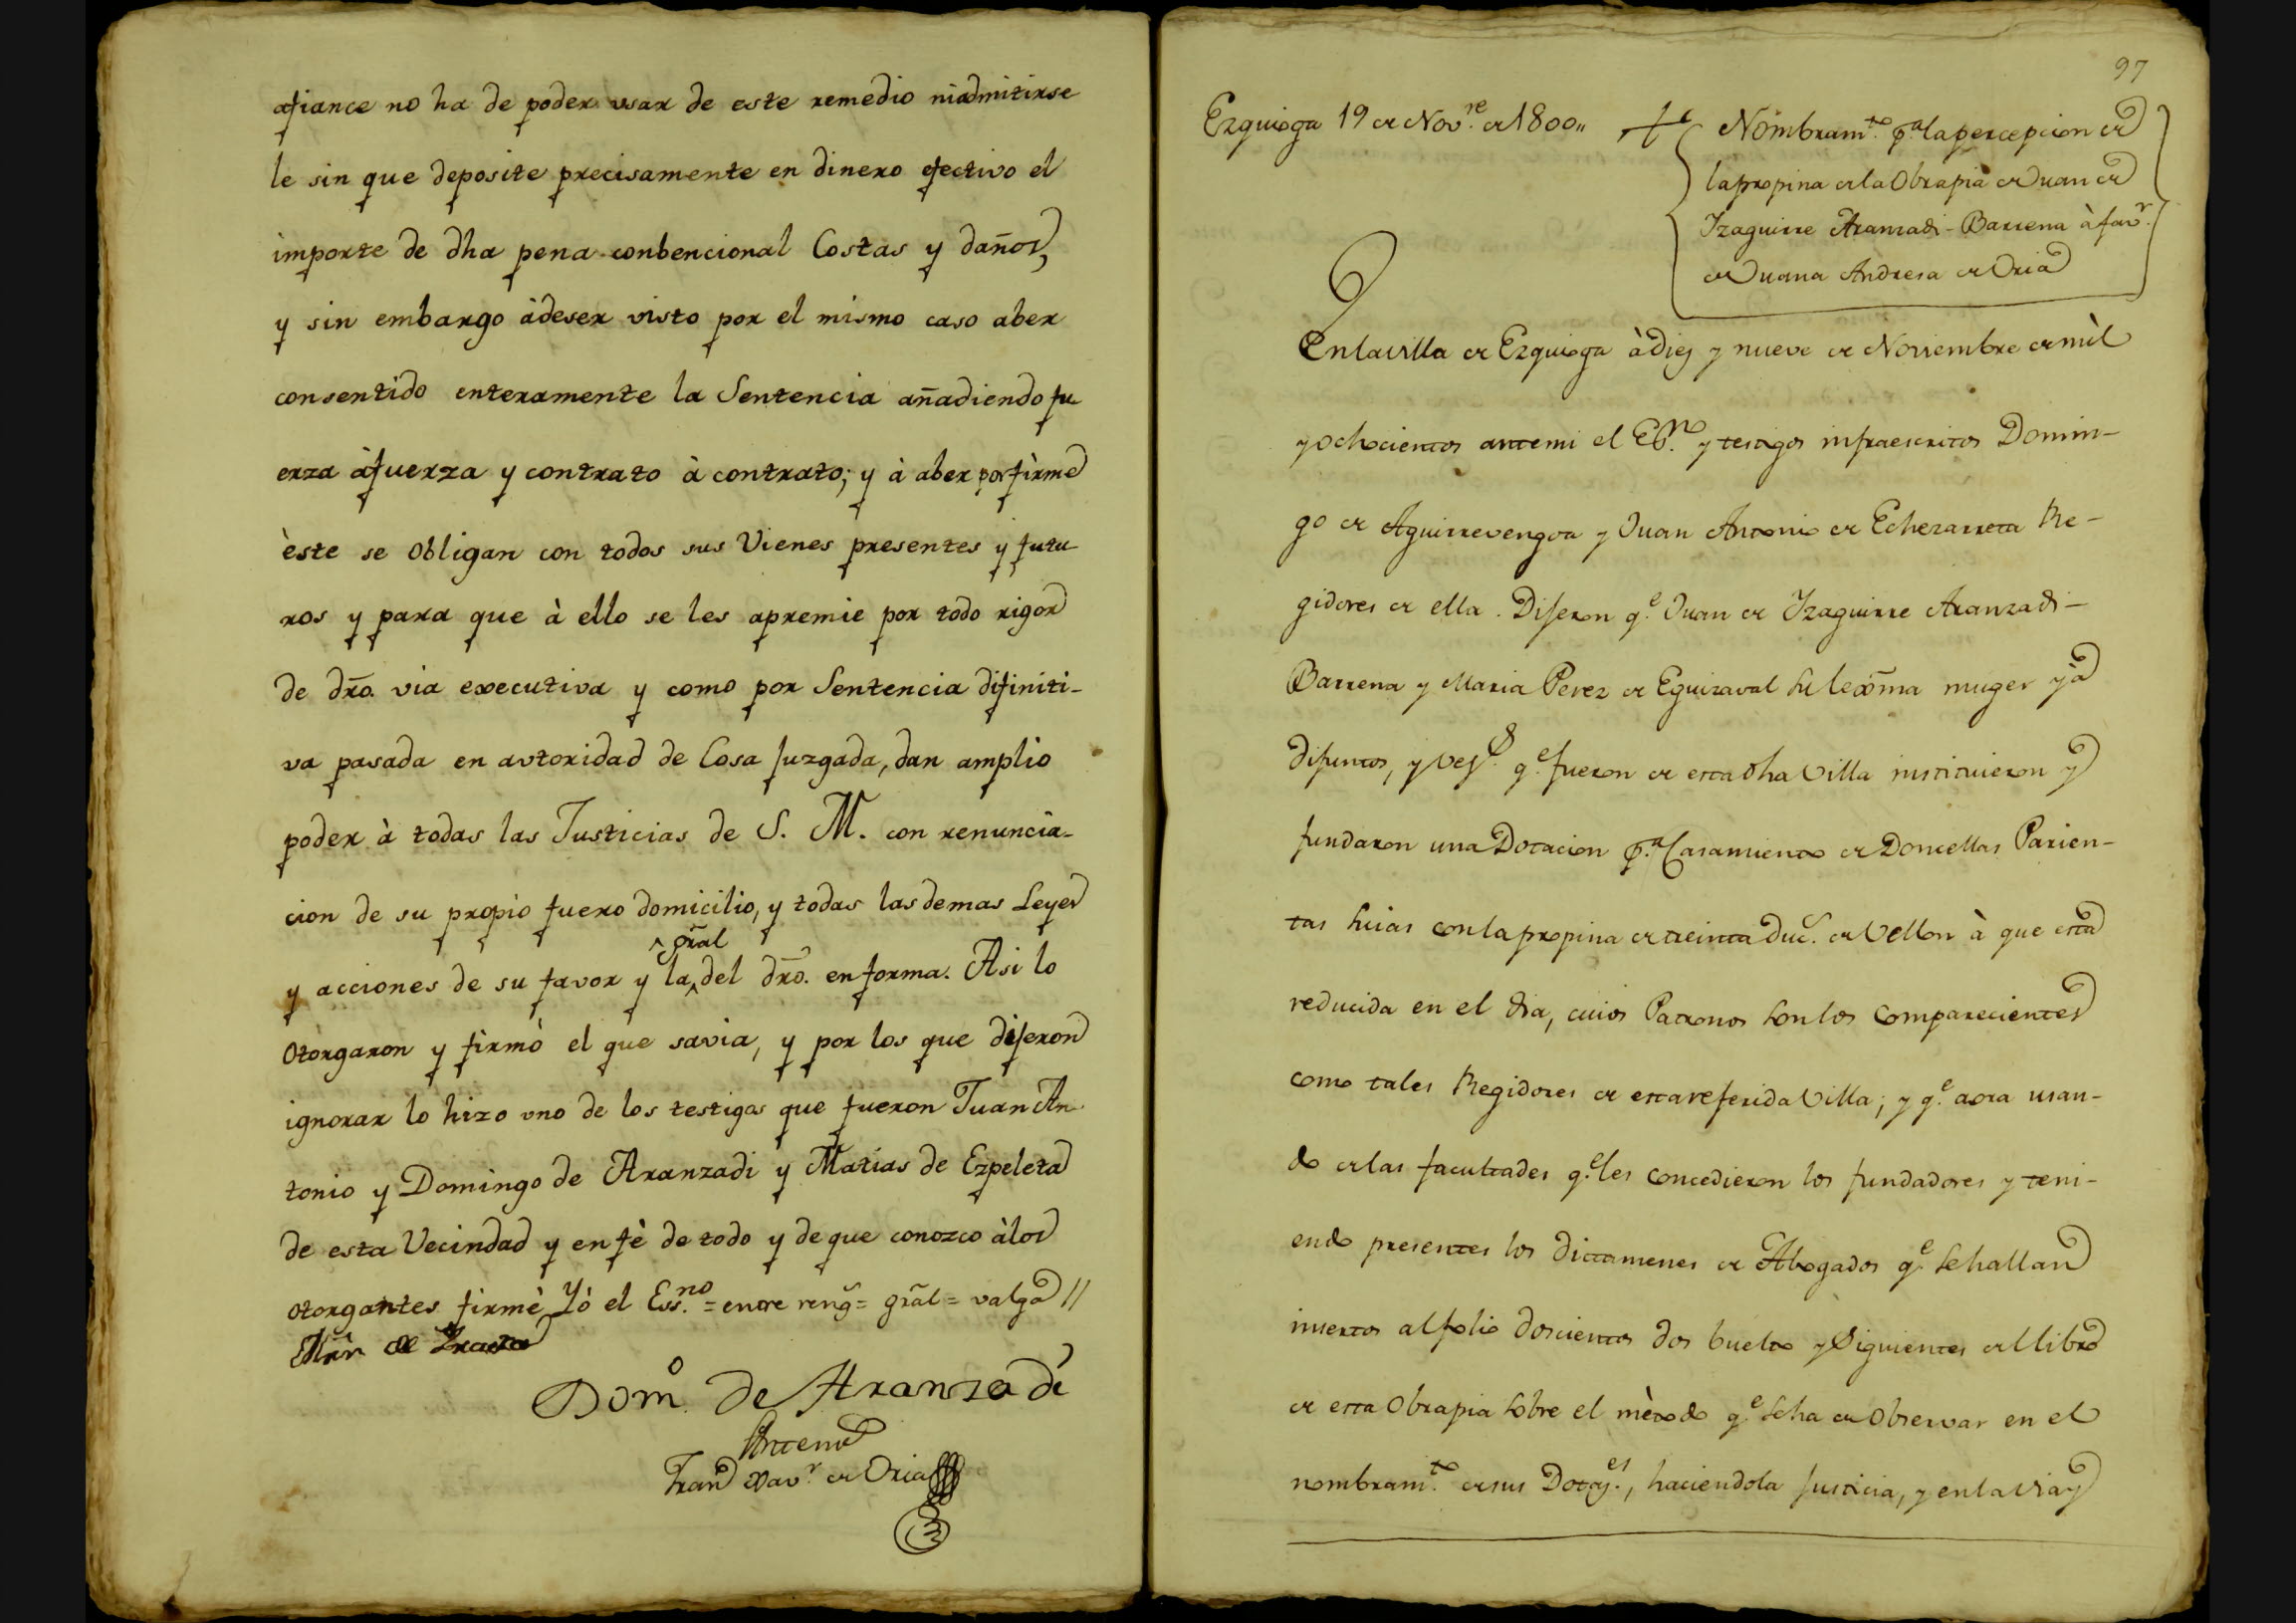 afiance no ha de poder usar de este remedio niadmitirse
le sin que deposite precisamente en dinero efectivo el
importe de dha pena conbencional Costas y daños,
y sin embargo àdeser visto por el mismo caso aber
consentido enteramente la Sentencia añadiendo fu
erza àfuerza y contrato à contrato; y à aber por firme
èste se obligan con todos sus Vienes presentes y futu
ros y para que à ello se les apremie por todo rigor
de dro. via executiva y como por Sentencia difiniti-
va pasada en autoridad de Cosa Juzgada, dan amplio
poder à todas las Justicias de S. M. con renuncia-
cion de su propio fuero domicilio, y todas las demas Leyes
y acciones de su favor y la gral del dro. en forma. Asi lo
otorgaron y firmò el que savia, y por los que dijeron
ignorar lo hizo uno de los testigos que fueron Juan An
tonio y Domingo de Aranzadi y Matias de Ezpeleta
de esta Vecindad y en fè de todo y de que conozco àlos
otorgantes firmè Yò el Ess.no = entre reng = gral = valga //
Domo. de Aranzadi
Antemi
Fran Xavr. de Oria
97
Ezquioga 19 de Novre. de 1800,,
Nombramto. pa. la percepcion de
la propina de la Obrapia de Juan de
Izaguirre Aranzadi-Barrena à favr.
de Juana Andresa de Oria
En la villa de Ezquioga à diez y nueve de Noviembre de mil
y ochocientos ante mi el Esno. y testigos infraescritos Domin-
go de Aguirrevengoa y Juan Antonio de Echezarreta Re-
gidores de ella. Dijeron qe. Juan de Izaguirre Aranzadi-
Barrena y Maria Perez de Eguizaval su lexma muger yà
difuntos, y vezs. qe. fueron de esta dha Villa instituieron y
fundaron una Dotacion pa. Casamiento de Doncellas Parien-
tas suias con la propina de treinta duc. de Vellon à que está
reducida en el dia, cuios Patronos son los Comparecientes
como tales Regidores de esta referida Villa; y qe. aora usan-
do de las facultades qe. les concedieron los fundadores y teni-
endo presentes los dictamenes de Abogados qe. se hallan
insertos al folio doscientos dos buelto y Siguientes del libro
de esta Obrapia sobre el mètodo qe. se ha de Observar en el
nombramto. de sus Dotazes., haciendola Justicia, y en la via y